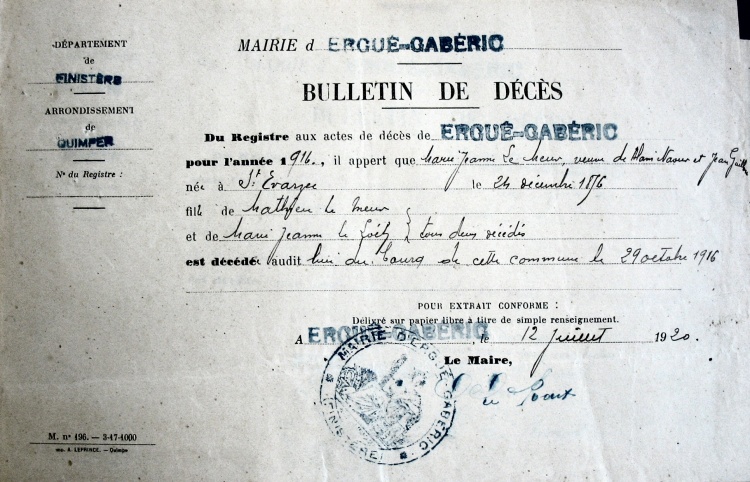 DÉPARTEMENT
de
FINISTÈRE
ARRONDISSEMENT
de
QUIMPER
N° du Registre :
MAIRIE d ERGUÉ-GABÉRIC
BULLETIN DE DÉCÈS
Du Registre aux actes de décès de ERGUÉ-GABÉRIC
pour l'année 1916, il appert que Marie Jeanne Le Meur, veuve de Alain Naour et Jean
née à St Evarzec le 24 décembre 1876
fille de Mathieu Le Meur
et de Marie Jeanne Le tous deux décédés
est décédée audit lieu du Bourg de cette commune le 29 octobre 1916
POUR EXTRAIT CONFORME :
Délivré sur papier libre à titre de simple renseignement.
A ERGUÉ-GABÉRIC, le 12 juillet 1920.
Le Maire,
MAIRIE D'ERGUÉ-GABÉRIC
(FINISTÈRE)
M. n° 196. — 3-17-1000
A. LEPRINCE. — Quimper